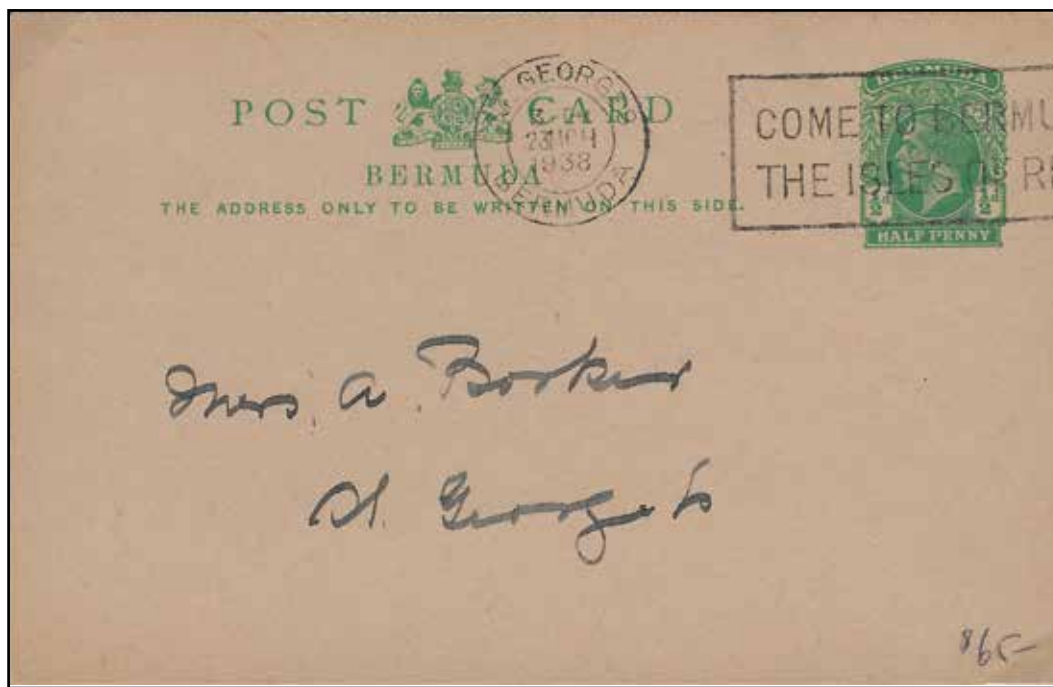 POST CARD
BERMUDA
THE ADDRESS ONLY TO BE WRITTEN ON THIS SIDE.
GEORGE'S
23
1938
BERMUDA
COME TO BERMU
THE ISLES OF RE
BERMUDA
½d ½d
HALF PENNY
Mrs. A. Booker
St. George's